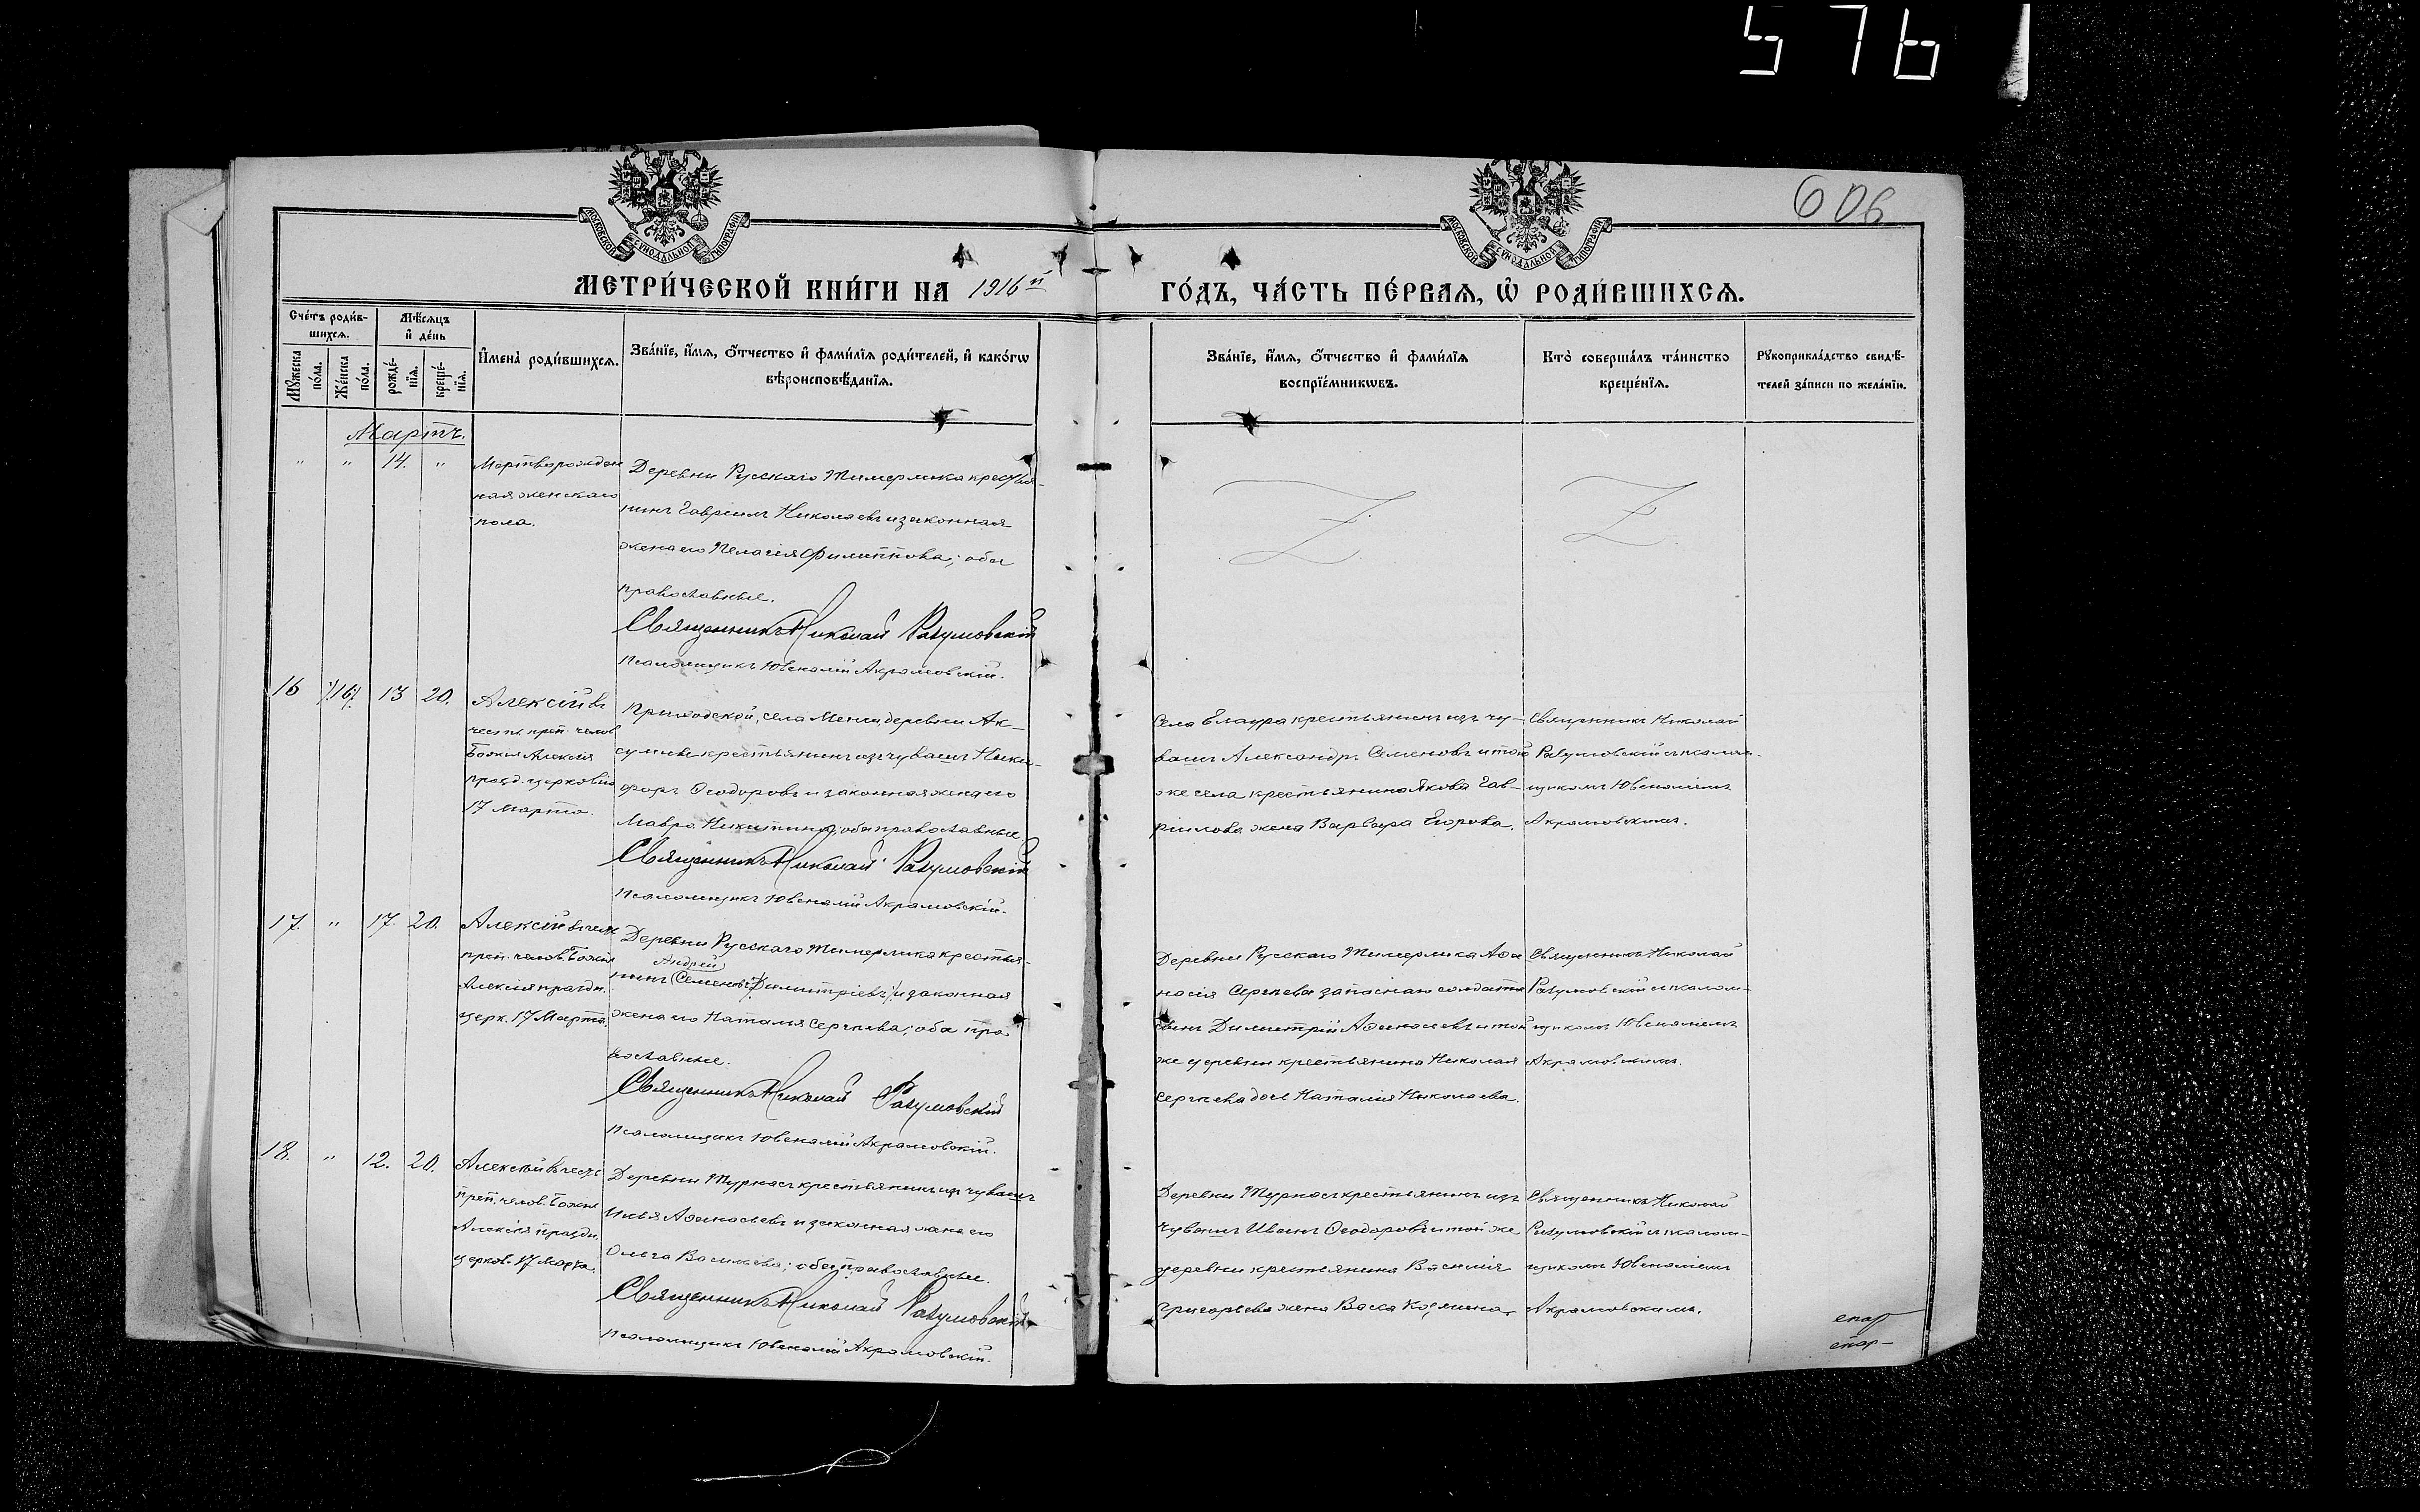 576
606
МОСКОВСКОЙ СУНОДАЛЬНОЙ ТИПОГРАФІИ
МОСКОВСКОЙ СУНОДАЛЬНОЙ ТИПОГРАФІИ
МЕТРИ́ЧЕСКОЙ КНИ́ГИ НА 1916й
ГО́ДЪ, ЧА́СТЬ ПЕ́РВАѦ, Ѽ РОДИ́ВШИХСѦ.
Сче́тъ роди́в-
шихсѧ.
Мꙋжеска по́ла.
Же́нска по́ла.
Мѣ́сѧцъ
и҆ де́нь
рожде́-
нїѧ.
креще́-
нїѧ.
И҆мена̀ роди́вшихсѧ.
Зва́нїе, и҆́мѧ, ѻ҆́тчество и҆ фами́лїѧ роди́телей, и҆ како́гѡ
вѣроисповѣ́данїѧ.
Зва́нїе, и҆́мѧ, ѻ҆́тчество и҆ фами́лїѧ
воспрїе́мникѡвъ.
Кто̀ соверша́лъ та́инство
креще́нїѧ.
Рꙋкоприкла́дство свидѣ́-
телей за́писи по жела́нїю.
Мартъ.
" " 14. "
Мертворожден
ная женскаго
пола.
Деревни Русскаго Тимерлика крестья-
нинъ Гавріилъ Николаевъ и законная
жена его Пелагія Филиппова; оба
православные.
Священникъ Николай Разумовскій
Псаломщикъ Ювеналій Акрамовскій.
16 "/16/ 13 20.
Алексій въ
честь преп. челов
Божія Алексія
празд. церковію
17 Марта.
Приходской, села Менчи, деревни Ак-
сумлы крестьянинъ изъ чувашъ Ники-
форъ Ѳеодоровъ и законная жена его
Мавра Никитина; оба православные
Священникъ Николай Разумовскій
Псаломщикъ Ювеналій Акрамовскій.
Села Елаура крестьянинъ изъ чу-
вашъ Александръ Семеновъ и того
же села крестьянина Якова Гав-
ріилова жена Варвара Егорова.
Священникъ Николай
Разумовскій съ псалом-
щикомъ Ювеналіемъ
Акрамовскимъ.
17. " 17. 20.
Алексій въ честь
преп. челов. Божія
Алексія праздн.
церк. 17 Марта.
Деревни Русскаго Тимерлика крестья-
Андрей
нинъ (Семенъ) Димитріевъ и законная
жена его Наталья Сергѣева; оба пра-
вославные.
Священникъ Николай Разумовскій
Псаломщикъ Ювеналій Акрамовскій.
Деревни Русскаго Тимерлика Аѳа
насія Сергѣева запаснаго солдата
сынъ Димитрій Аѳанасьевъ и той
же деревни крестьянина Николая
Сергѣева дочь Наталія Николаева.
Священникъ Николай
Разумовскій съ псалом-
щикомъ Ювеналіемъ
Акрамовскимъ.
18. " 12. 20.
Алексій въ честь
преп. челов. Божія
Алексія праздн.
церков. 17 Марта.
Деревни Турнасъ крестьянинъ изъ чувашъ
Илья Аѳанасьевъ и законная жена его
Ольга Васильева; оба православные.
Священникъ Николай Разумовскій
Псаломщикъ Ювеналій Акрамовскій.
Деревни Турнасъ крестьянинъ изъ
чувашъ Иванъ Ѳеодоровъ и той же
деревни крестьянина Василія
Григорьева жена Васса Козмина.
Священникъ Николай
Разумовскій съ псалом-
щикомъ Ювеналіемъ
Акрамовскимъ.